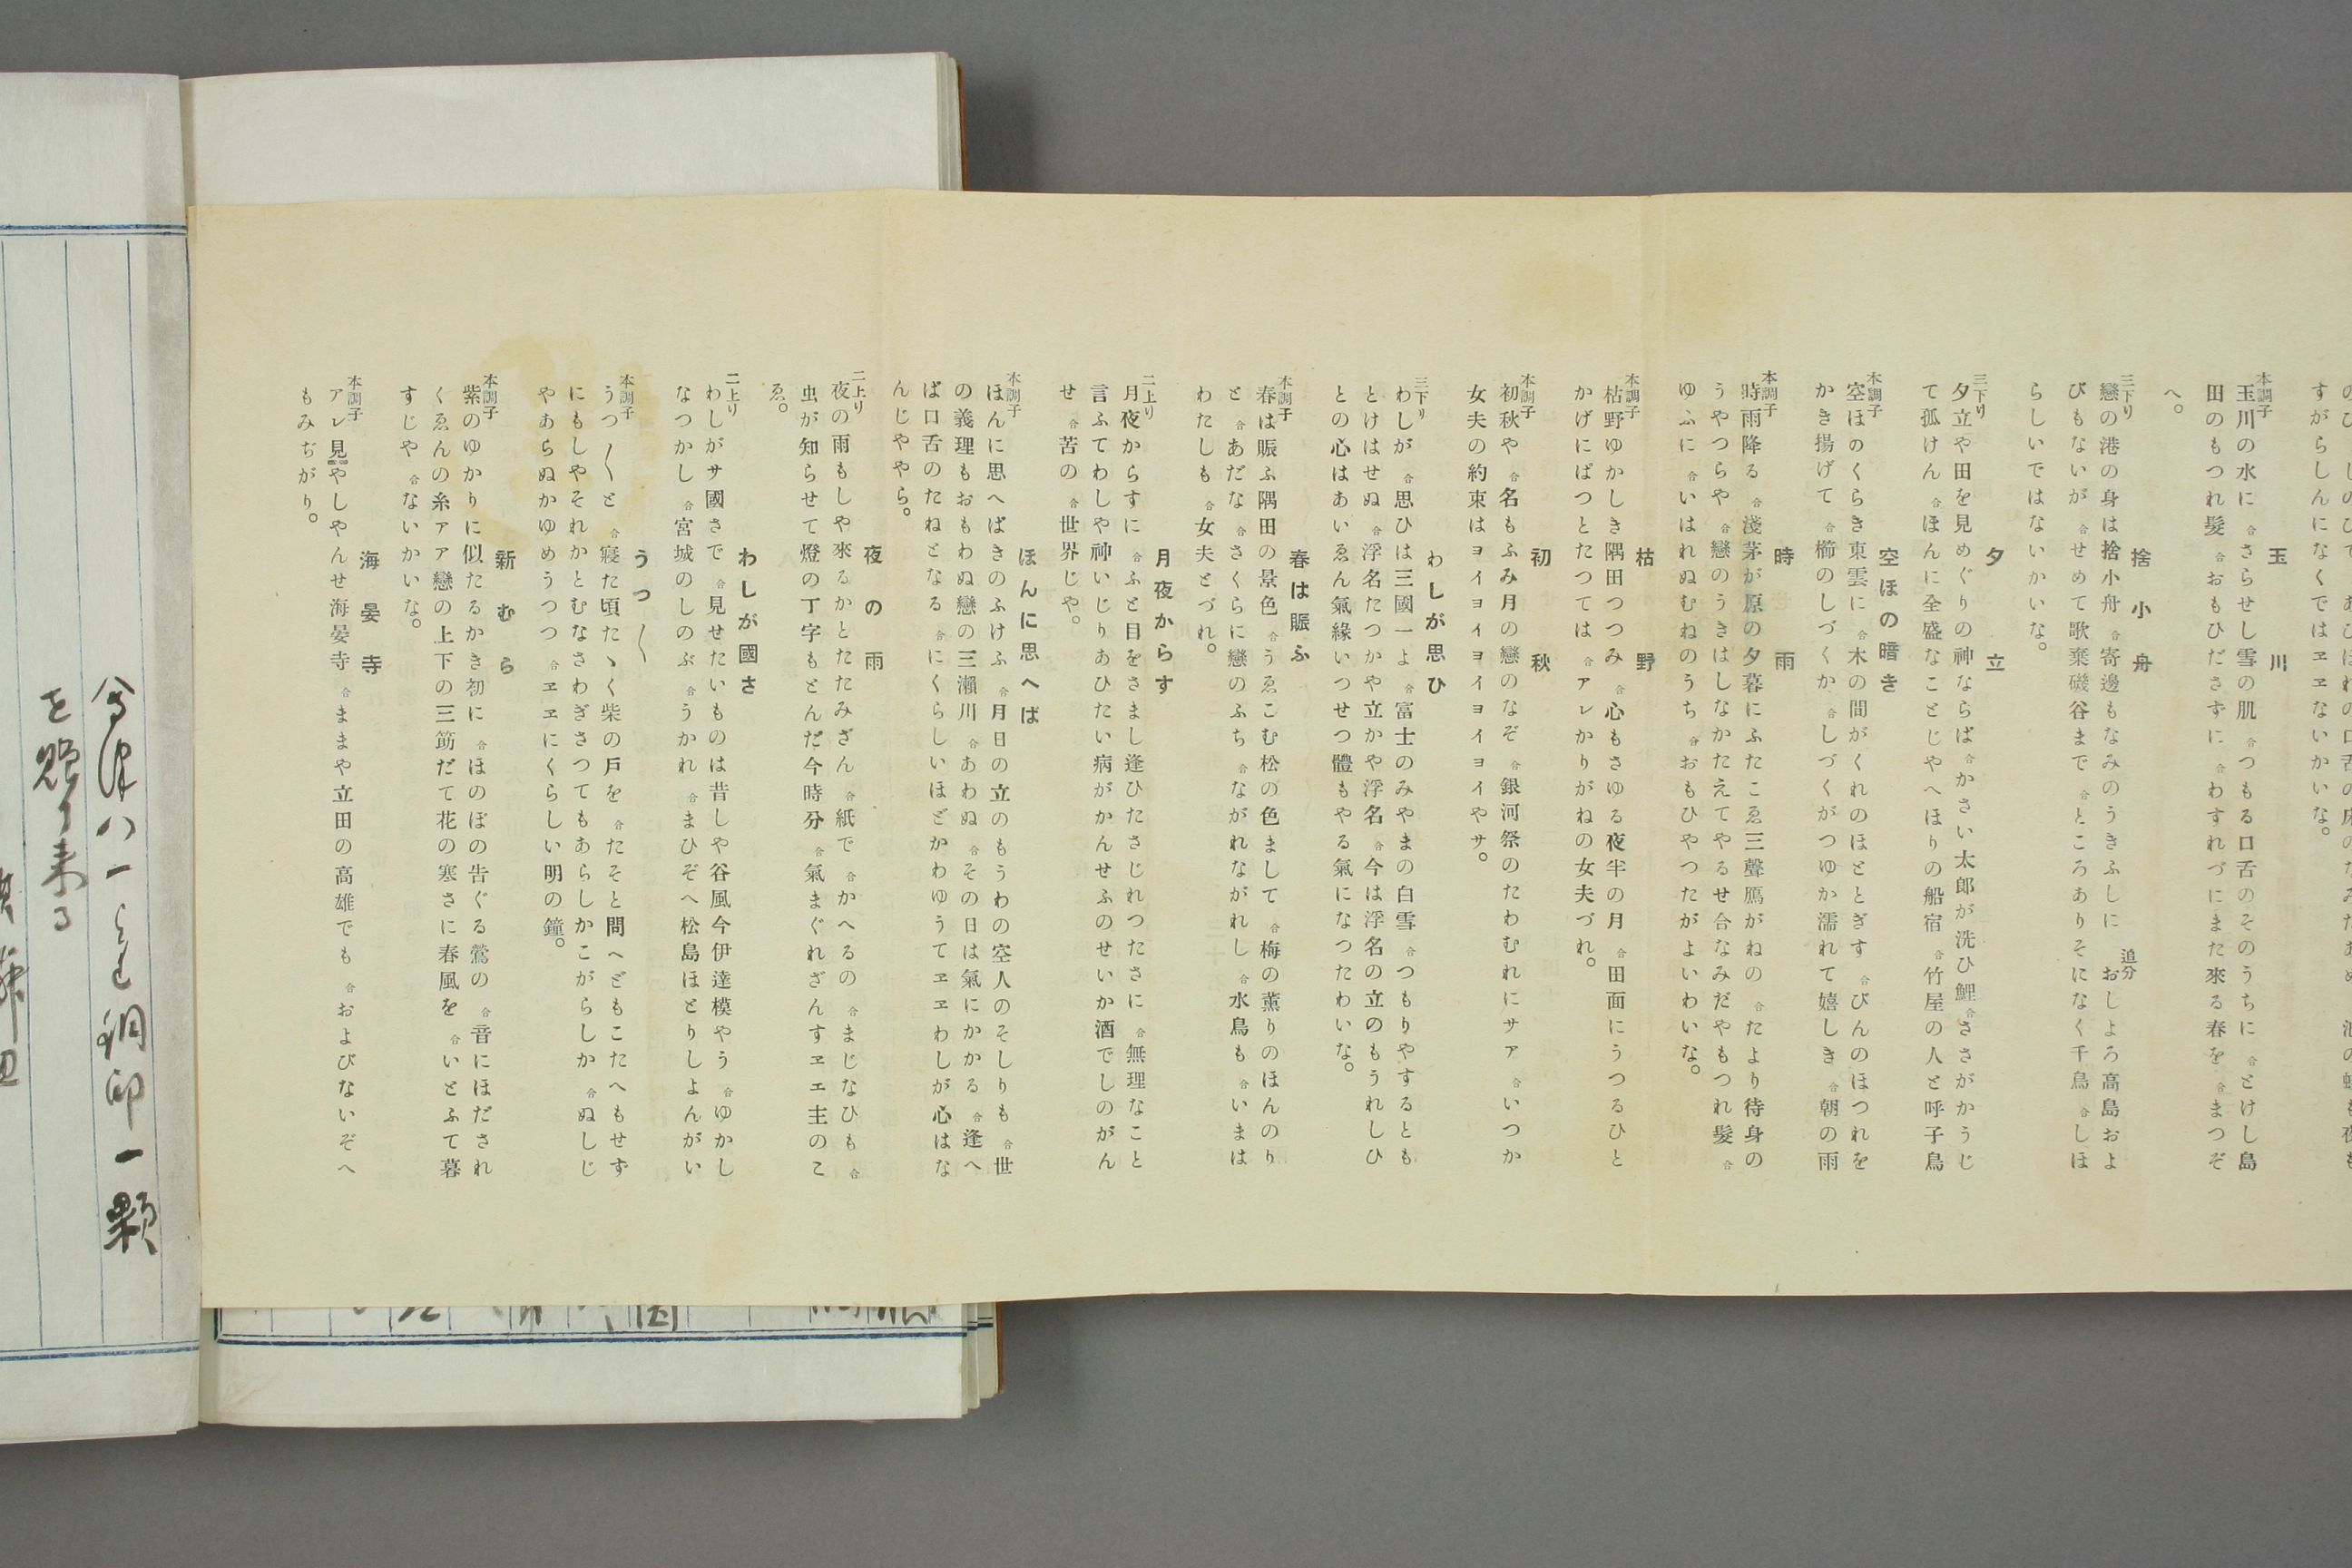 すがらしんになくではヱヽないかいな。
玉川
本調子
玉川の水に 合さらせし雪の肌 合つもる口舌のそのうちに 合とけし島
田のもつれ髮 合おもひださずに 合わすれづにまた來る春を 合まつぞ
へ。
捨小舟
三下り
戀の港の身は捨小舟 合寄邊もなみのうきふしに 追分 おしよろ高島およ
びもないが 合せめて歌棄磯谷まで 合ところありそになく千鳥 合しほ
らしいではないかいな。
夕立
三下り
夕立や田を見めぐりの神ならば合かさい太郎が洗ひ鯉合ささがかうじ
て孤けん 合ほんに全盛なことじやへほりの船宿 合竹屋の人と呼子鳥
空ほの暗き
本調子
空ほのくらき東雲に 合木の間がくれのほととぎす 合びんのほつれを
かき揚げて 合櫛のしづくか 合しづくがつゆか濡れて嬉しき 合朝の雨
時雨
本調子
時雨降る 合淺茅が原の夕暮にふたこゑ三聲鴈がねの 合たより待身の
うやつらや 合戀のうきはしなかたえてやるせ合なみだやもつれ髮 合
ゆふに 合いはれぬむねのうち 合おもひやつたがよいわいな。
枯野
本調子
枯野ゆかしき隅田つつみ 合心もさゆる夜半の月 合田面にうつるひと
かげにぱつとたつては 合アレかりがねの女夫づれ。
初秋
本調子
初秋や 合名もふみ月の戀のなぞ 合銀河祭のたわむれにサァ 合いつか
女夫の約束はヨイヨイヨイヨイヨイやサ。
わしが思ひ
三下り
わしが 合思ひは三國一よ 合富士のみやまの白雪 合つもりやするとも
とけはせぬ 合浮名たつかや立かや浮名 合今は浮名の立のもうれしひ
との心はあいゑん氣緣いつせつ體もやる氣になつたわいな。
春は賑ふ
本調子
春は賑ふ隅田の景色 合うゑこむ松の色まして 合梅の薫りのほんのり
と 合あだな 合さくらに戀のふち 合ながれながれし 合水鳥も 合いまは
わたしも 合女夫とづれ。
月夜からす
二上り
月夜からすに 合ふと目をさまし逢ひたさじれつたさに 合無理なこと
言ふてわしや神いじりあひたい病がかんせふのせいか酒でしのがん
せ 合苦の 合世界じや。
ほんに思へば
本調子
ほんに思へばきのふけふ 合月日の立のもうわの空人のそしりも 合世
の義理もおもわぬ戀の三瀨川 合あわぬ 合その日は氣にかかる 合逢へ
ば口舌のたねとなる 合にくらしいほどかわゆうてヱヱわしが心はな
んじややら。
夜の雨
二上り
夜の雨もしや來るかとたたみざん 合紙で 合かへるの 合まじなひも 合
虫が知らせて燈の丁字もとんだ今時分 合氣まぐれざんすヱヱ主のこ
ゑ。
わしが國さ
二上り
わしがサ國さで 合見せたいものは昔しや谷風今伊達模やう 合ゆかし
なつかし 合宮城のしのぶ 合うかれ 合まひぞへ松島ほとりしよんがい
うつ〱
本調子
うつ〱と 合寢た頃たゝく柴の戶を 合たそと問へどもこたへもせず
にもしやそれかとむなさわぎさつてもあらしかこがらしか 合ぬしじ
やあらぬかゆめうつつ 合ヱヱにくらしい明の鐘。
新むら
本調子
紫のゆかりに似たるかき初に 合ほのぼの告ぐる鶯の 合音にほだされ
くゑんの糸ァァ戀の上下の三筋だて花の寒さに春風を 合いとふて暮
すじや 合ないかいな。
海晏寺
本調子
アレ見やしやんせ海晏寺 合ままや立田の高雄でも 合およびないぞへ
もみぢがり。
調印一顆
を贈り来る